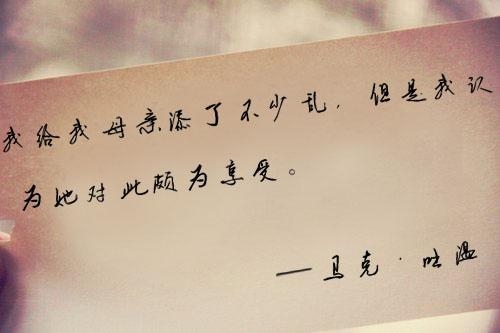 我给我母亲添了不少乱，但是我认
为她对此颇为享受。
——马克·吐温